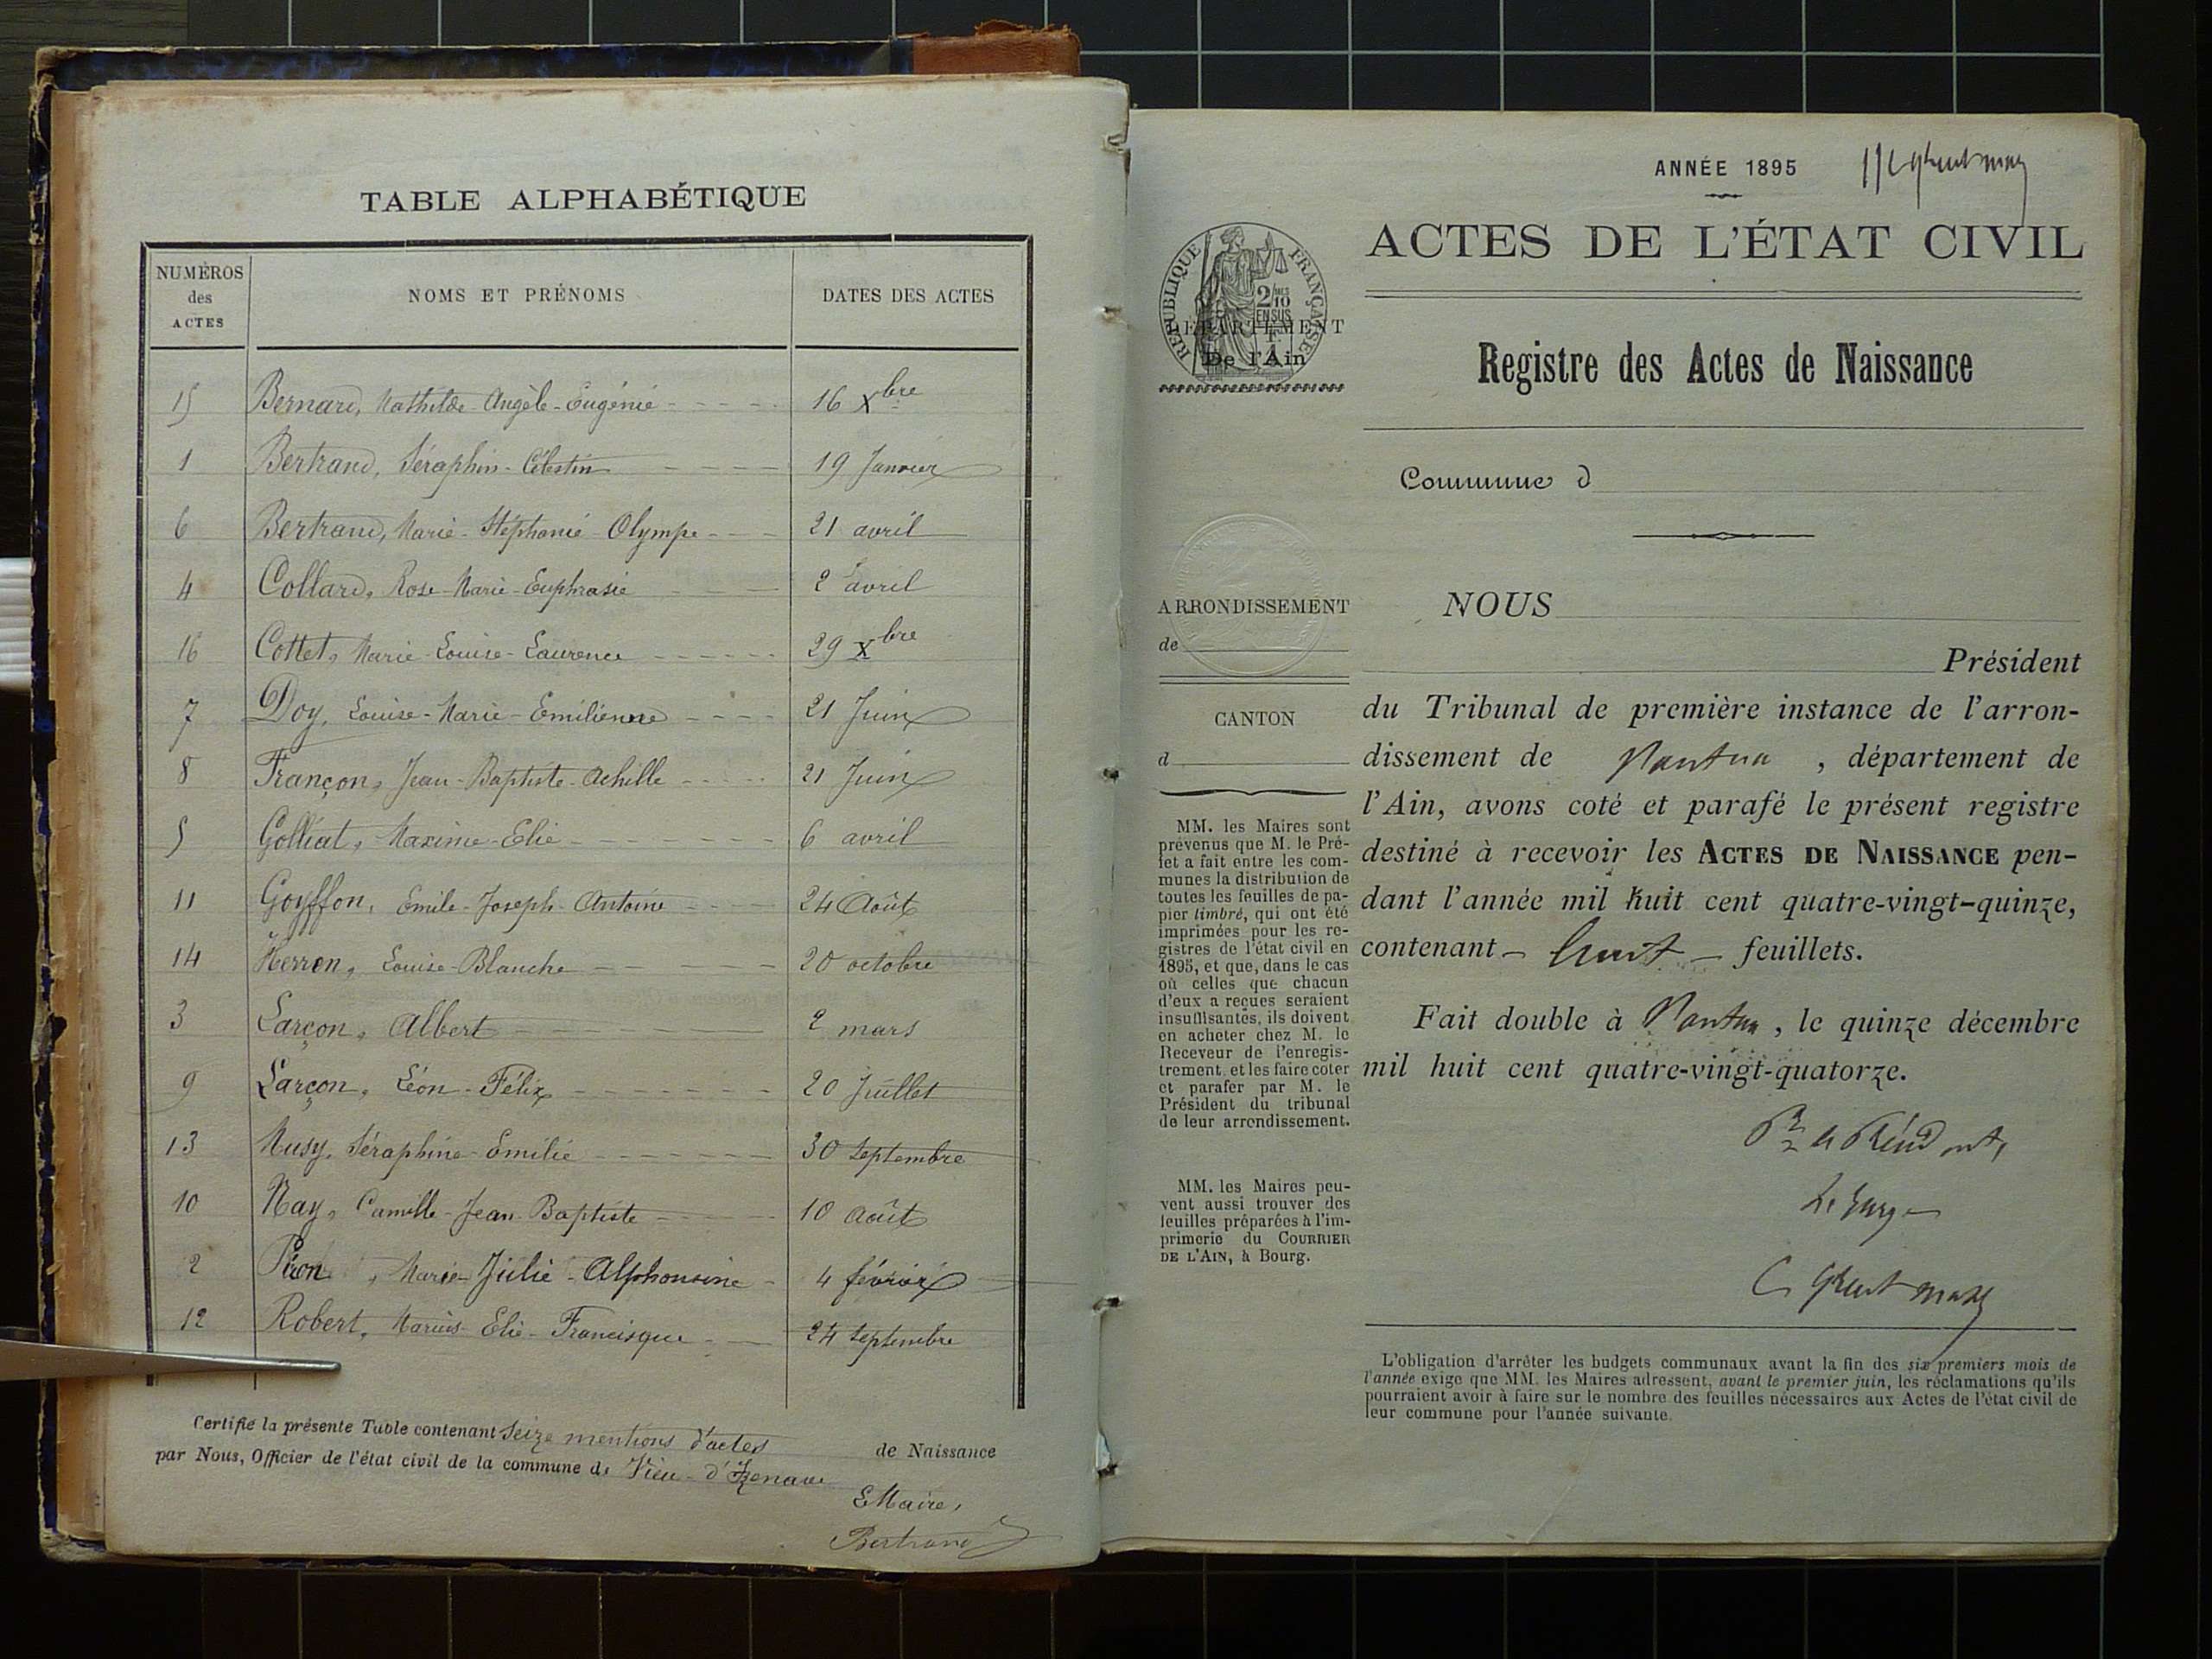 TABLE ALPHABÉTIQUE
NUMÉROS des ACTES NOMS ET PRÉNOMS DATES DES ACTES
15 Bernard, Mathilde-Angèle-Eugénie 16 Xbre
1 Bertrand, Séraphin-Célestin 19 Janvier
6 Bertrand, Marie-Stéphanie Olympe 21 avril
4 Collard, Rose-Marie-Euphrasie 2 avril
16 Cottet, Marie-Louise-Laurence 29 Xbre
7 Doy, Louise-Marie-Emilienne 21 Juin
8 Françon, Jean-Baptiste-Achille 21 Juin
5 Golliat, Maxime-Elie 6 avril
11 Goyffon, Emile-Joseph-Antoine 24 Août
14 Herren, Louise-Blanche 20 octobre
3 Larçon, Albert 2 mars
9 Larçon, Léon-Félix 20 Juillet
13 Musy, Séraphine-Emilie 30 Septembre
10 Nay, Camille-Jean-Baptiste 10 août
2 Piron, Marie-Julie-Alphonsine 4 février
12 Robert, Marius-Elie-Francisque 24 Septembre
Certifié la présente Table contenant Seize mentions d'actes de Naissance
par Nous, Officier de l'état civil de la commune de Vieu-d'Izenave
Le Maire,
Bertrand
ANNÉE 1895
ACTES DE L'ÉTAT CIVIL
RÉPUBLIQUE FRANÇAISE
2/10 EN SUS
DÉPARTEMENT
De l'Ain
Registre des Actes de Naissance
Commune d
ARRONDISSEMENT
de
CANTON
d
MM. les Maires sont
prévenus que M. le Pré-
fet a fait entre les com-
munes la distribution de
toutes les feuilles de pa-
pier timbré, qui ont été
imprimées pour les re-
gistres de l'état civil en
1895, et que, dans le cas
où celles que chacun
d'eux a reçues seraient
insuffisantes, ils doivent
en acheter chez M. le
Receveur de l'enregis-
trement, et les faire coter
et parafer par M. le
Président du tribunal
de leur arrondissement.
MM. les Maires peu-
vent aussi trouver des
feuilles préparées à l'im-
primerie du COURRIER
DE L'AIN, à Bourg.
NOUS
Président
du Tribunal de première instance de l'arron-
dissement de Nantua, département de
l'Ain, avons coté et parafé le présent registre
destiné à recevoir les ACTES DE NAISSANCE pen-
dant l'année mil huit cent quatre-vingt-quinze,
contenant - huit - feuillets.
Fait double à Nantua, le quinze décembre
mil huit cent quatre-vingt-quatorze.
Le Juge
L'obligation d'arrêter les budgets communaux avant la fin des six premiers mois de
l'année exige que MM. les Maires adressent, avant le premier juin, les réclamations qu'ils
pourraient avoir à faire sur le nombre des feuilles nécessaires aux Actes de l'état civil de
leur commune pour l'année suivante.